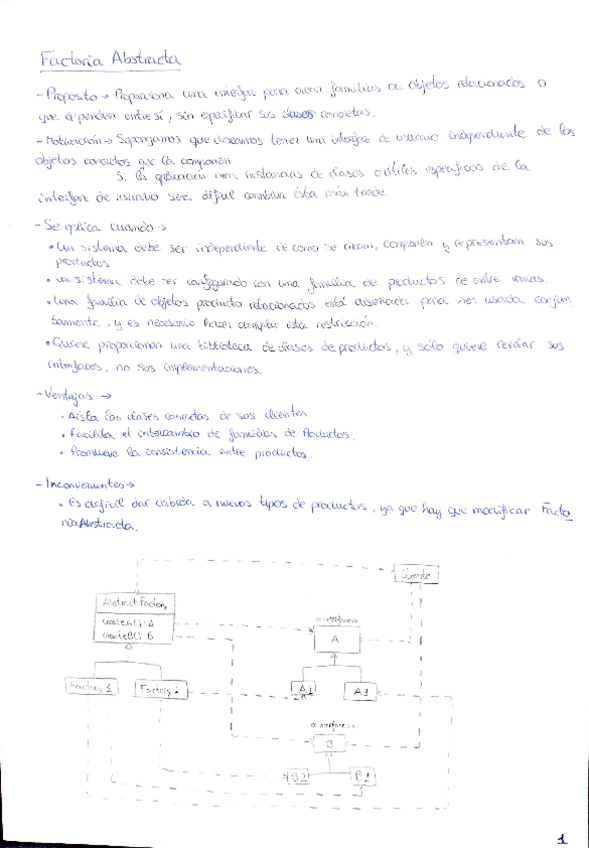 Factoria Abstracta
- Proposito → Proporciona una interfaz para crear familias de objetos relacionados o
que dependen entre sí, sin especificar sus clases concretas.
- Motivación → Supongamos que deseamos tener una interfaz de usuario independiente de los
objetos concretos que la componen
Si la aplicación crea instancias de clases o útiles específicos de la
interfaz de usuario será difícil cambiar ésta más tarde.
- Se aplica cuando →
• Un sistema debe ser independiente de como se crean, componen y representan sus
productos
• un sistema debe ser configurado con una familia de productos de entre varias.
• Una familia de objetos producto relacionados está diseñada para ser usada conjun
tamente, y es necesario hacer cumplir esta restricción.
• Quiere proporcionar una biblioteca de clases de productos, y sólo quiere revelar sus
interfaces, no sus implementaciones.
- Ventajas →
• Aisla las clases concretas de sus clientes
• Facilita el intercambio de familias de Productos.
• Promueve la consistencia entre productos.
- Inconvenientes →
• Es dificil dar cabida a nuevos tipos de productos, ya que hay que modificar Facto
riaAbstracta.
Cliente
AbstractFactory
createA(): A
createB(): B
A
Factory 1
Factory 2
A2
A1
B
B2
B1
1